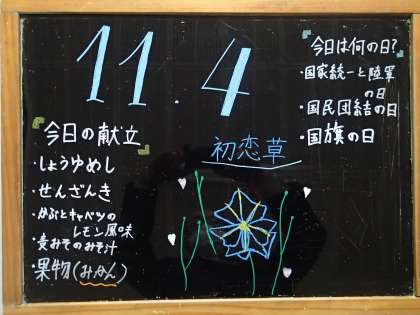 11.4
『今日は何の日?』
・国家統一と陸軍
の日
・国民団結の日
・国旗の日
初恋草
『今日の献立』
・しょうゆめし
・せんざんき
・かぶとキャベツの
レモン風味
・麦みそのみそ汁
・果物(みかん)